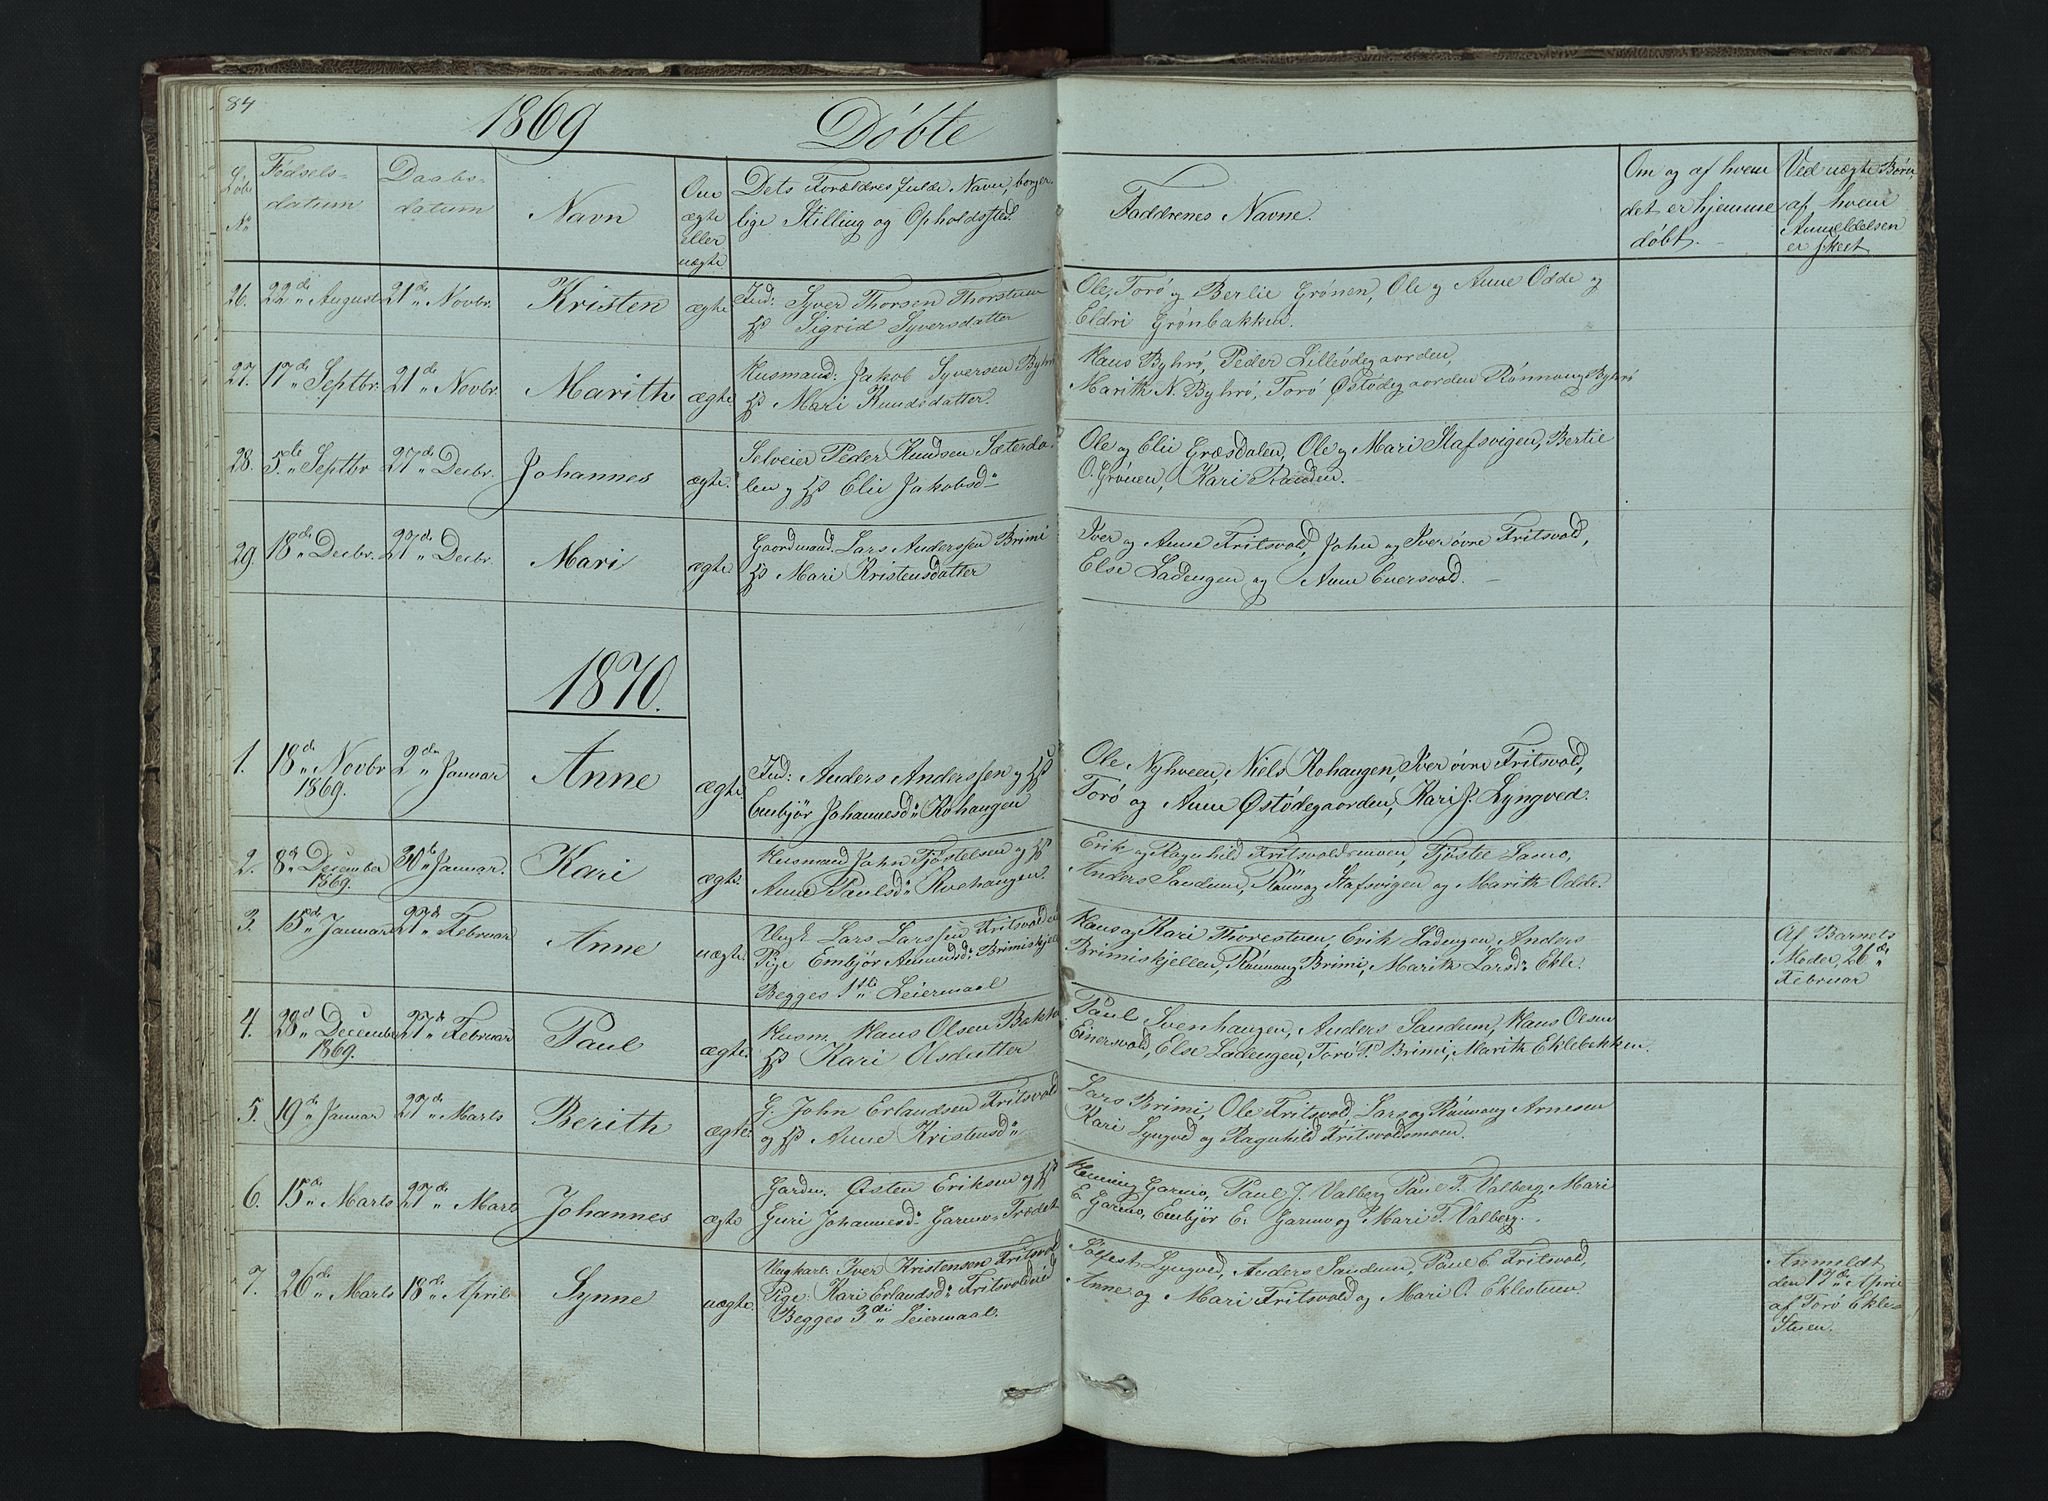 84
1869 Döbte
Löbe N°
Födsels-
datum
Daabs-
datum
Navn
Om
ægte
eller
uægte
Dets Forældres fulde Navn, borger-
lige Stilling og Opholdssted.
Faddrenes Navne.
Om og af hvem
det er hjemme
döbt.
Ved uægte Börn,
af hvem
Anmeldelsen
er skeet
26. 22de August 21de Novbr. Kristen ægte Ind: Syver Thorsen Thorstuen
Hs Sigrid Syversdatter
Ole, Torö og Berlie Grönen, Ole og Anne Odde og
Eldri Grönbakken.
27. 17de Septbr. 21de Novbr. Marith ægte Husmand: Jakob Syversen Byhrö
Hs Mari Knudsdatter.
Hans Byhrö, Peder Lilleödegaarden,
Marith N. Byhrö, Torö Östödegaarden Rönnaug Byhrö
28. 5te Septbr 27de Decbr. Johannes ægte. Selveier Peder Knudsen Sæterda-
len og Hs Elie Jakobsd:
Ole og Elie Græsdalen, Ole og Mari Stafsvigen, Bertie
O. Grönen, Kari Randen.
29. 18de Decbr. 27de Decbr. Mari ægte Gaardmand. Lars Anderssen Brimi
Hs Mari Kristensdatter
Iver og Anne Fritsvold, John og Iver övre Fritsvold,
Else Ladengen og Anne Enersvold.
1870.
1. 18de Novbr 2den Januar Anne ægte. Ind: Anders Anderssen og Hs
1869.
Embjör Johannesd: Rohaugen
Ole Nyhveen, Niels Rohaugen, Iver övre Fritsvold,
Torö og Anne Östödegaarden, Kari J. Lyngved.
2. 8de December 30te Januar. Kari ægte. Husmand John Tjöstelsen og Hs
1869.
Anne Paulsd: Roehaugen.
Erik og Ragnhild Fritsvoldsmoen, Tjöstel Samo,
Anders Sandum, Rönnog Stafsvigen og Marith Odde.
3. 15de Januar 27de Februar Anne uægte. Ungk. Lars Larssen Fritsvoldeie
Pige Embjör Amundsd: Brimiskjell
Begges 1ste Leiermaal
Hans og Kari Thorestuen, Erik Ladengen, Anders
Brimiskjellen, Rönnaug Brimi, Marith Larsd: Ekle.
Af Barnets
Moder, 26de
Februar
4. 28de December 27de Februar Paul ægte. Husm. Hans Olsen Bakke
1869.
Hs Kari Olsdatter
Paul Svenhaugen, Anders Sandum, Hans Olsen
Einersvold, Else Ladengen, Torö P. Brimi, Marith Eklebakken.
5. 19de Januar 27de Marts Berith ægte. G. John Erlandsen Fritsvold
og Hs Anne Kristensd:
Lars Brimi, Ole Fritsvold, Lars og Rönnaug Arnesen
Kari Lyngved og Ragnhild Fritsvoldsmoen.
6. 15de Marts 27de Marts Johannes ægte Gardm. Østen Eriksen og Hs
Guri Johannesd: Garmo-Trædet
Heming Garmo, Paul J. Valberg, Paul T. Valberg, Mari
E. Garmo, Embjör E. Garmo og Mari T. Valberg.
7. 26de Marts 18de April Synne uægte Ungkarl: Iver Kristensen Fritsvold
Pige: Kari Erlandsd: Fritsvoldeid
Begges 3die Leiermaal.
Sölfest Lyngved, Anders Sandum, Paul E. Fritsvold,
Anne og Mari Fritsvold og Mari O. Eklestuen.
Anmeldt
den 17de April
af Torö Ekle-
Stuen.